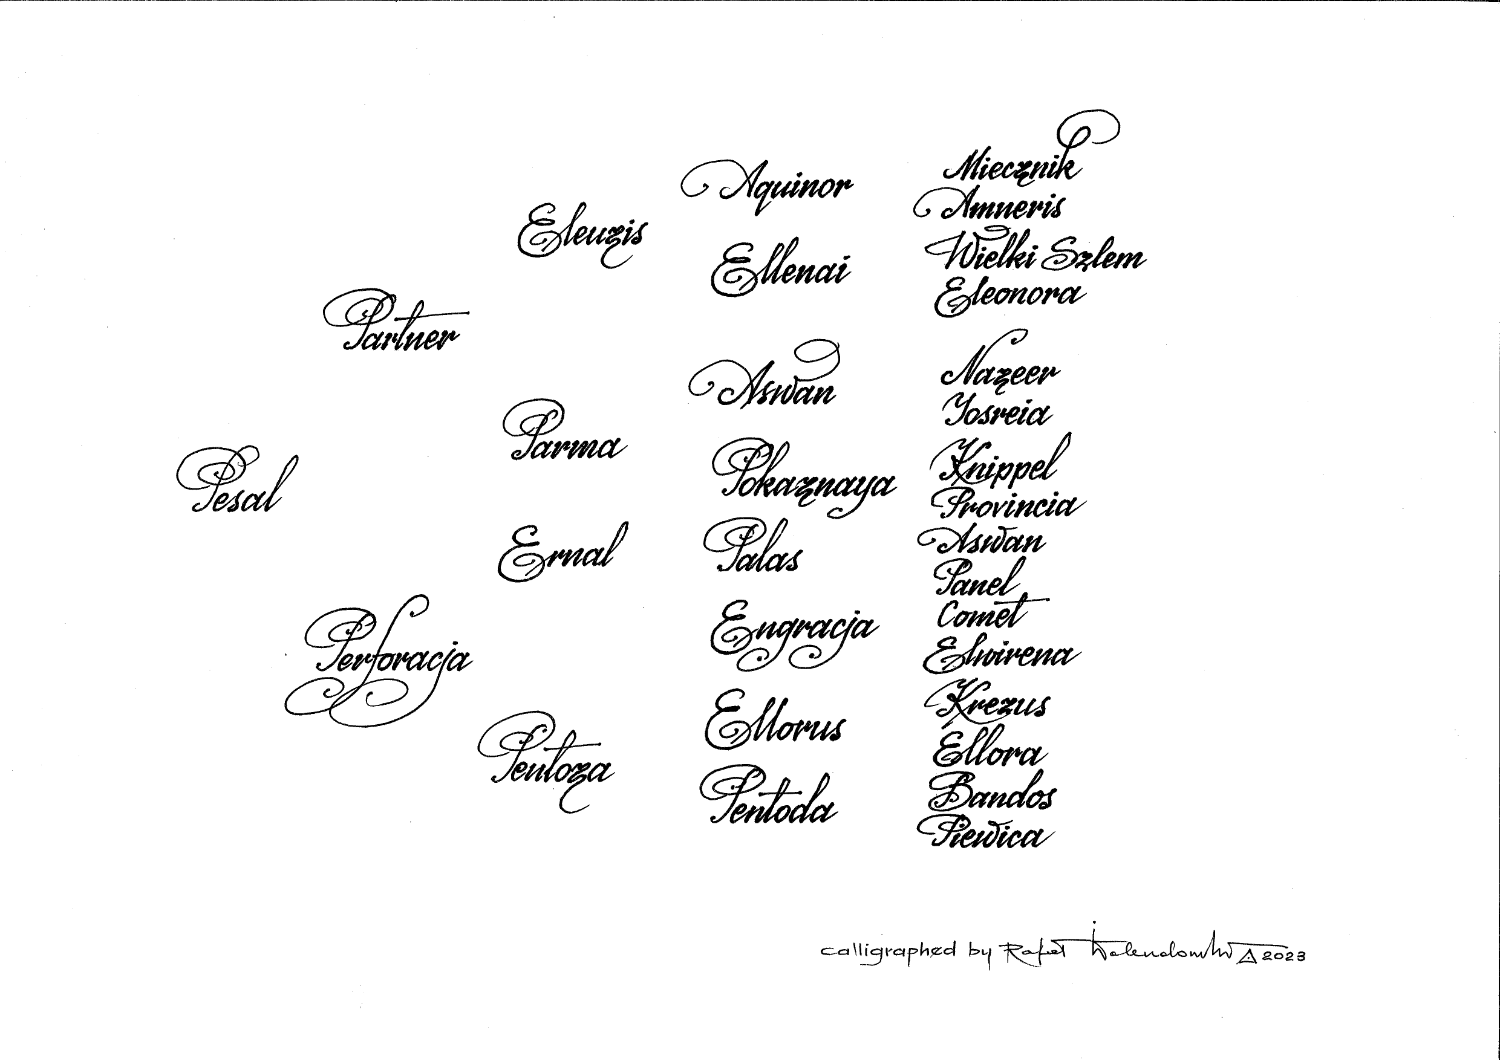 Pesal
Partner
Perforacja
Eleuzis
Parma
Ernal
Pentoza
Aquinor
Ellenai
Aswan
Pokaznaya
Palas
Engracja
Ellorus
Pentoda
Miecznik
Amneris
Wielki Szlem
Eleonora
Nazeer
Yosreia
Knippel
Provincia
Aswan
Panel
Comet
Elwirena
Krezus
Ellora
Bandos
Piewica
calligraphed by Rafał 2023